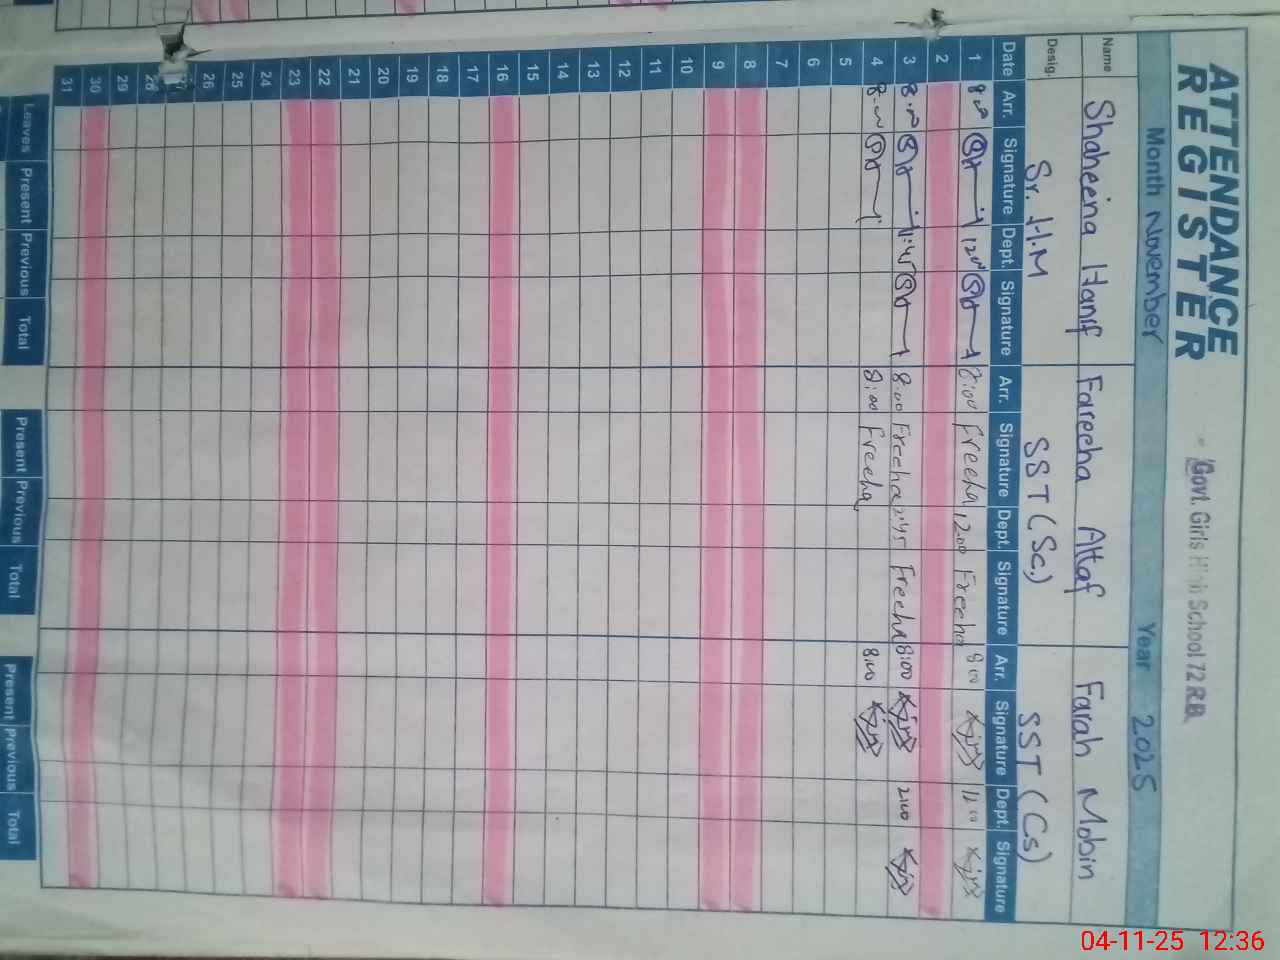 ATTENDANCE
REGISTER
Govt. Girls High School 72 RB
Month November Year 2025
Name Shaheena Hanif Fareeha Altaf Farah Mobin
Desig. Sr. H.M SST (Sc.) SST (Cs)
Date Arr. Signature Dept. Signature Arr. Signature Dept. Signature Arr. Signature Dept. Signature
1 8:00 12:00 8:00 Freeha 12:00 Freeha 8:00 12:00
2
3 8:00 1:45 8:00 Freeha 2:45 Freeha 8:00 2:00
4 8:00 8:00 Freeha 8:00
5
6
7
8
9
10
11
12
13
14
15
16
17
18
19
20
21
22
23
24
25
26
27
28
29
30
31
Leaves Present Previous Total Present Previous Total Present Previous Total
04-11-25 12:36